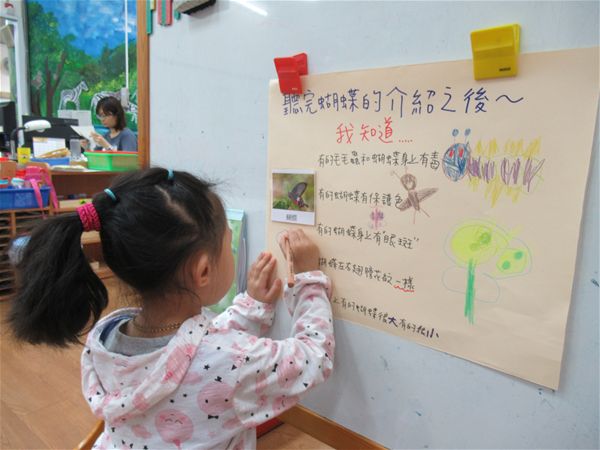 聽完蝴蝶的介紹之後~
我知道.....
有的毛毛蟲和蝴蝶身上有毒
有的蝴蝶有保護色
有的蝴蝶身上有"眼斑"
蝴蝶左右翅膀花紋一樣
上有的蝴蝶很大有的很小